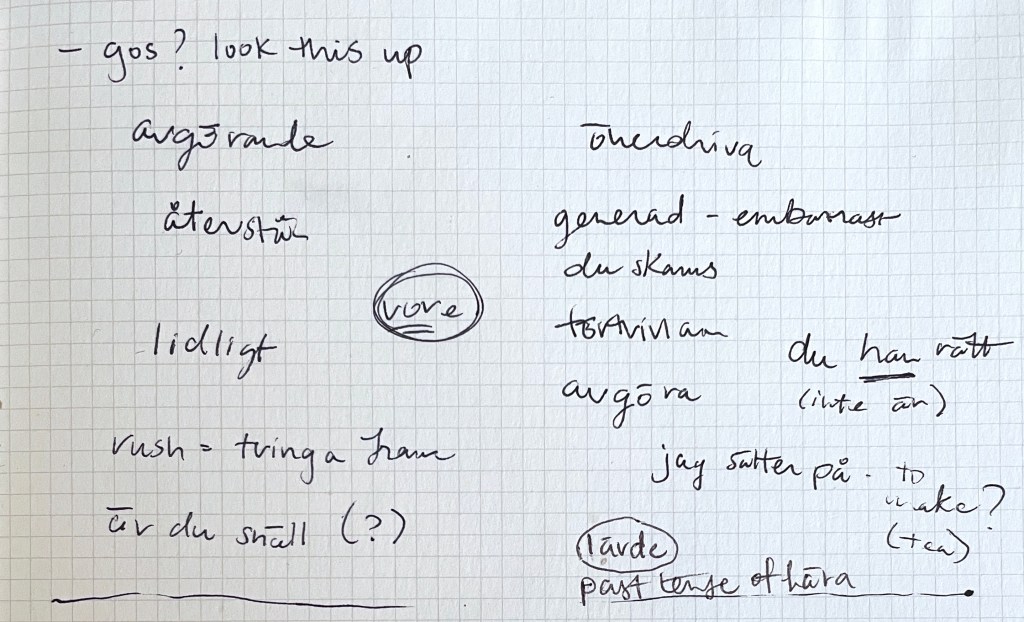 - gos? look this up
avgörande
återstår
vore
lidligt
rush = tvinga fram
är du snäll (?)
överdriva
generad - embarrast
du skams
avgöra
du har rätt
(inte är)
jag sätter på - to
make?
(tea)
lärde
past tense of lära